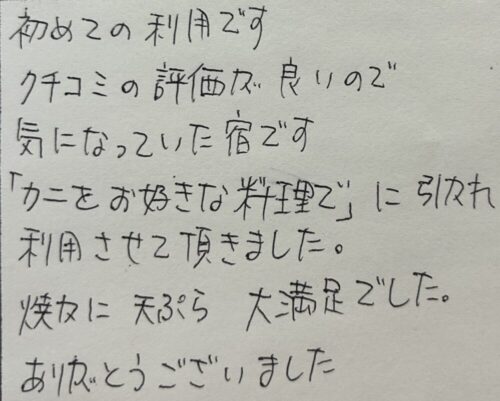 初めての利用です
クチコミの評価が良いので
気になっていた宿です
「カニをお好きな料理で」に引かれ
利用させて頂きました。
焼カニ 天ぷら 大満足でした。
ありがとうございました